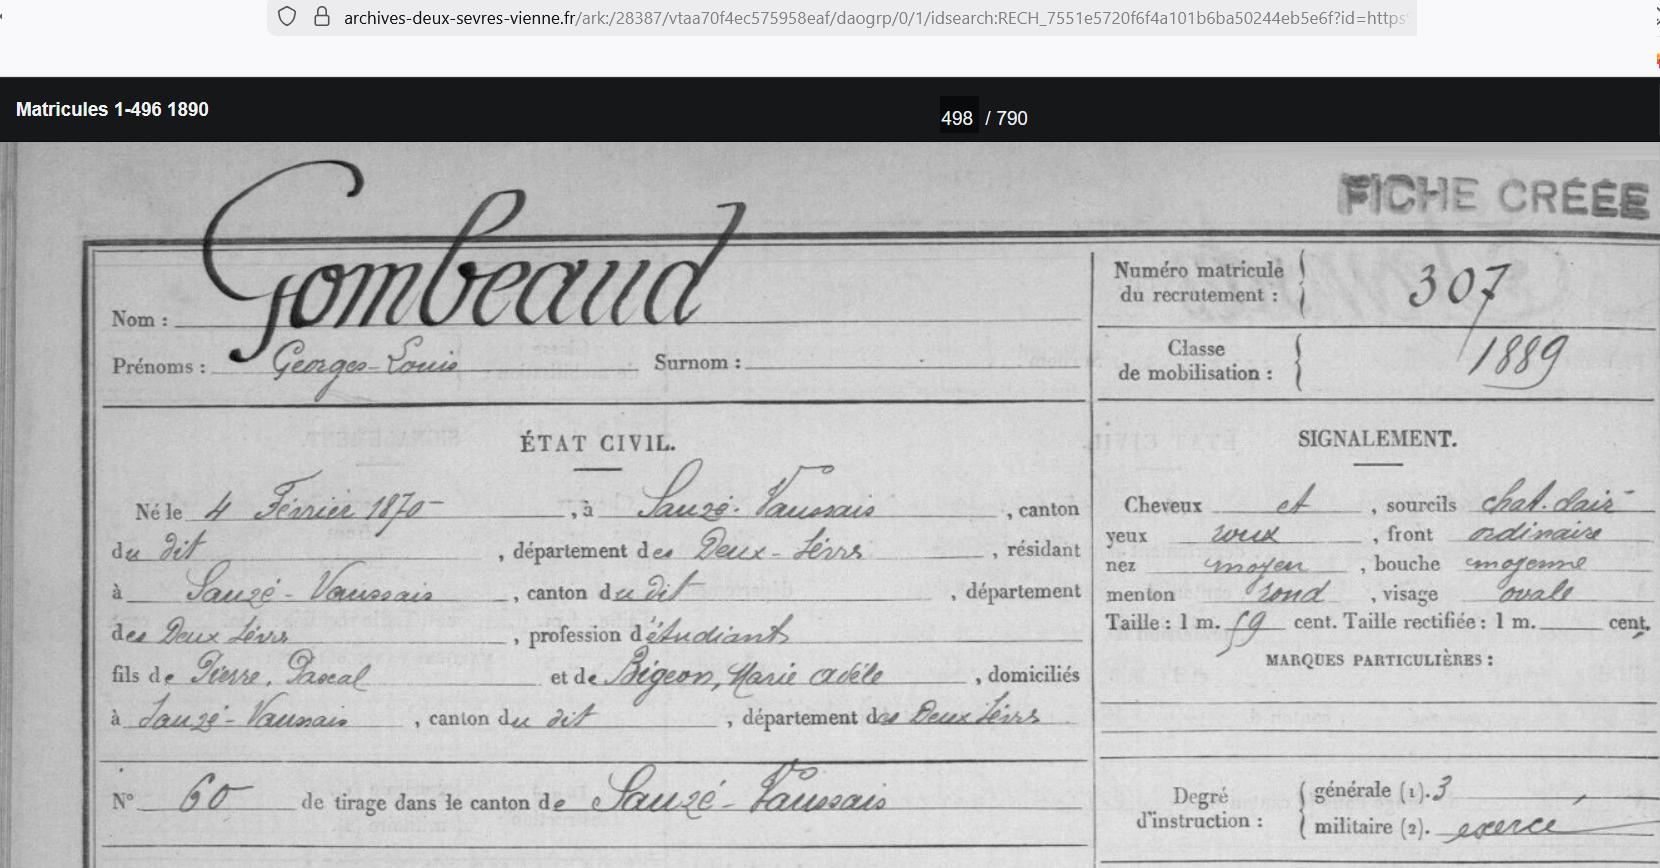 archives-deux-sevres-vienne.fr/ark:/28387/vtaa70f4ec575958eaf/daogrp/0/1/idsearch:RECH_7551e5720f6f4a101b6ba50244eb5e6f?id=https
Matricules 1-496 1890
498 / 790
FICHE CRÉÉE
Nom : Gombeaud
Prénoms : Georges-Louis Surnom :
Numéro matricule du recrutement : 307
Classe de mobilisation : 1889
ÉTAT CIVIL.
Né le 4 Février 1870 , à Sauzé-Vaussais , canton
du dit , département des Deux-Sèvres , résidant
à Sauzé-Vaussais , canton du dit , département
des Deux Sèvres , profession d'étudiant
fils de Pierre, Pascal et de Bigeon, Marie Adèle , domiciliés
à Sauzé-Vaussais , canton du dit , département des Deux Sèvres
N° 60 de tirage dans le canton de Sauzé-Vaussais
SIGNALEMENT.
Cheveux et , sourcils chat. clair
yeux roux , front ordinaire
nez moyen , bouche moyenne
menton rond , visage ovale
Taille : 1 m. 59 cent. Taille rectifiée : 1 m. cent.
MARQUES PARTICULIÈRES :
Degré d'instruction :
générale (1). 3
militaire (2). exercé